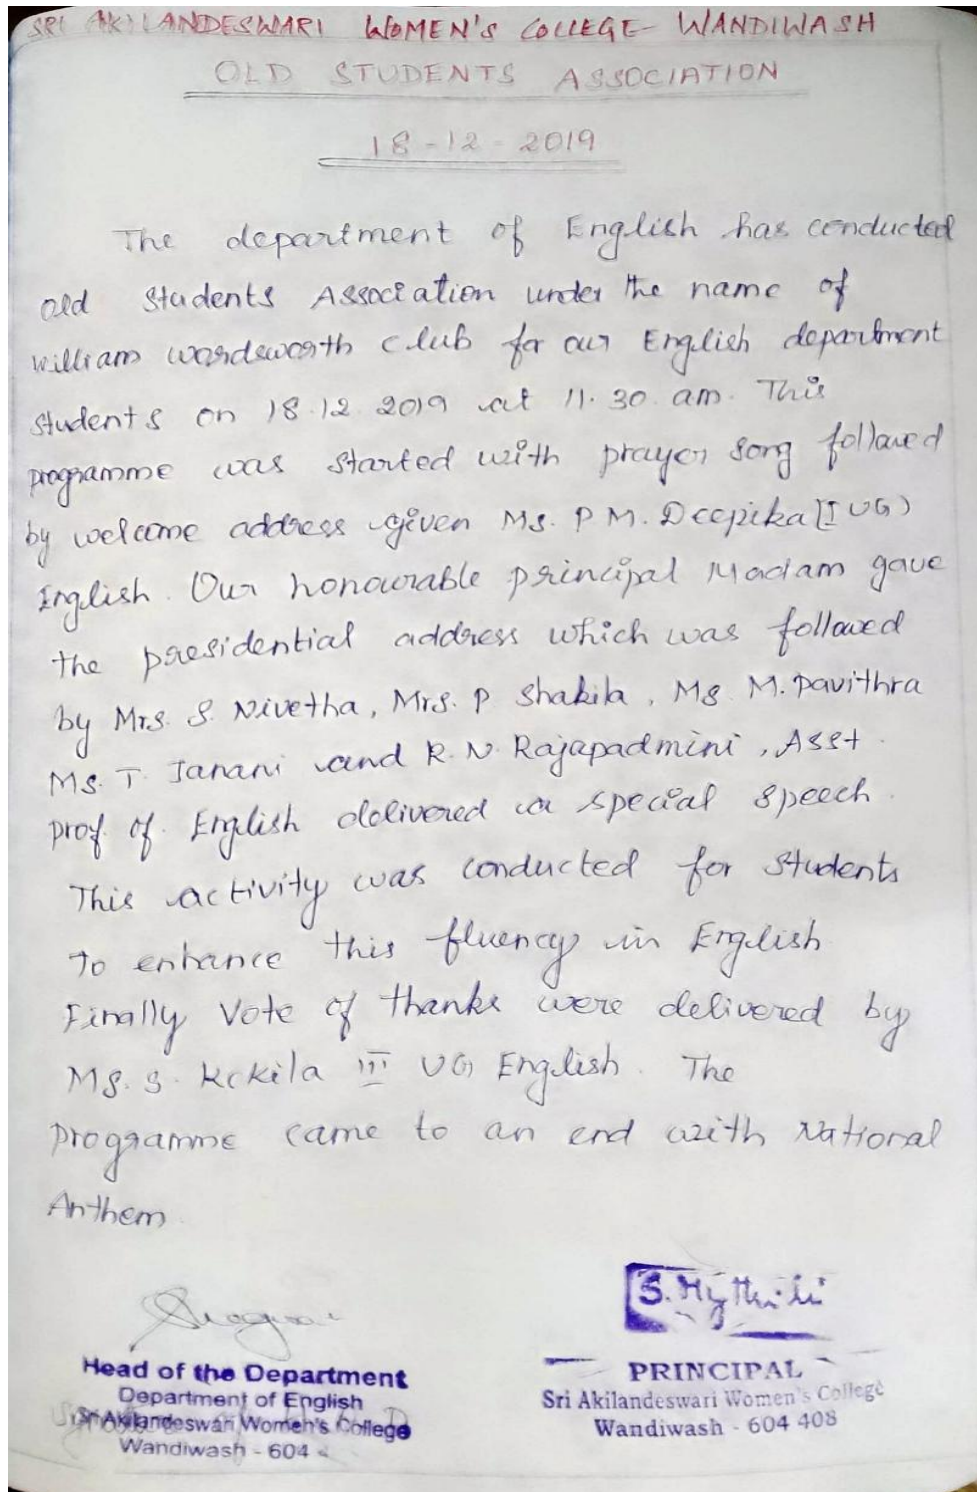 SRI AKILANDESWARI WOMEN'S COLLEGE - WANDIWASH
OLD STUDENTS ASSOCIATION
18-12-2019
The department of English has conducted
old Students Association under the name of
William Wordsworth Club for our English department
Students on 18.12.2019 at 11.30 am. This
programme was started with prayer song followed
by welcome address given Ms. P M. Deepika (I UG)
English. Our honourable principal Madam gave
the presidential address which was followed
by Mrs. S. Nivetha, Mrs. P Shakila, Ms M. Pavithra
Ms. T. Janani and R. N. Rajapadmini, Asst.
prof. of English delivered a special speech.
This activity was conducted for Students
To enhance this fluency in English
Finally Vote of thanks were delivered by
Ms. S. Kokila III UG English. The
programme came to an end with National
Anthem.
S. Mythili
Head of the Department
Department of English
Sri Akilandeswari Women's College
Wandiwash - 604
PRINCIPAL
Sri Akilandeswari Women's College
Wandiwash - 604 408